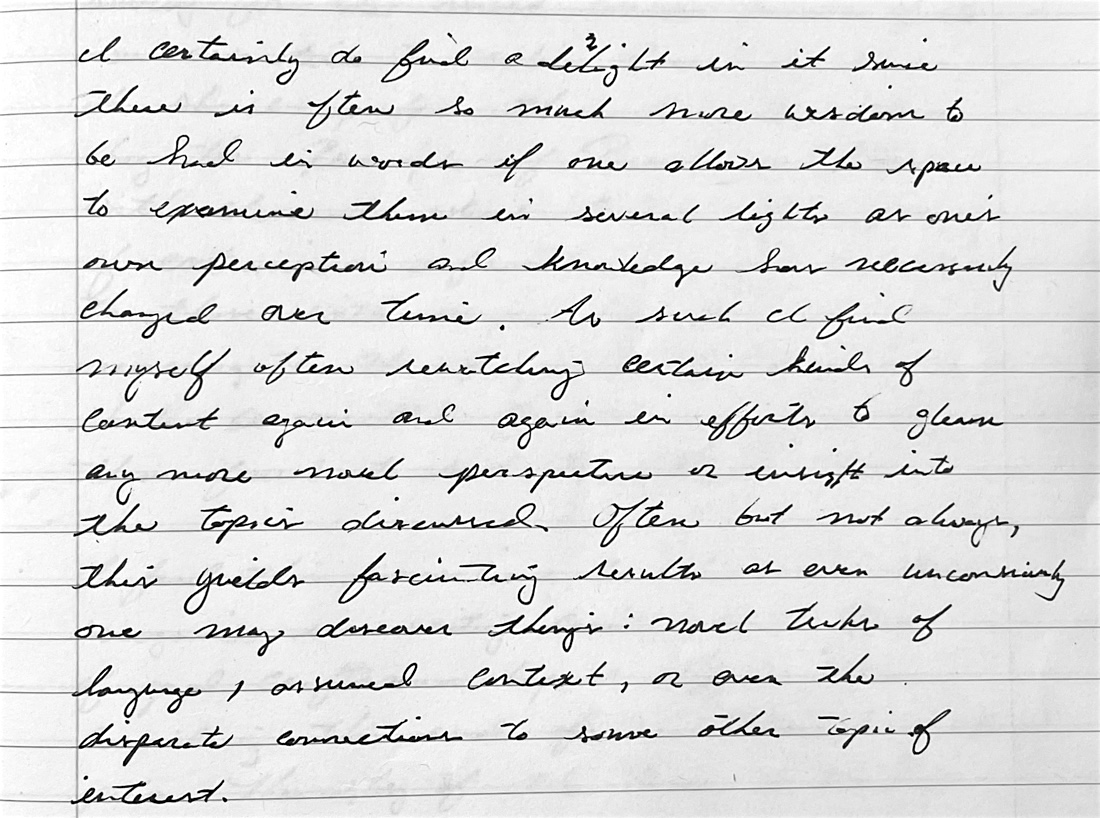 I certainly do find a delight in it since
there is often so much more wisdom to
be had in words if one allows the space
to examine them in several lights as one's
own perception and knowledge has necessarily
changed over time. As such I find
myself often rewatching certain kinds of
content again and again in efforts to glean
any more novel perspective or insight into
the topics discussed. Often but not always,
this yields fascinating results as even unconsciously
one may discover things: novel tricks of
language, assumed context, or even the
disparate connections to some other topic of
interest.